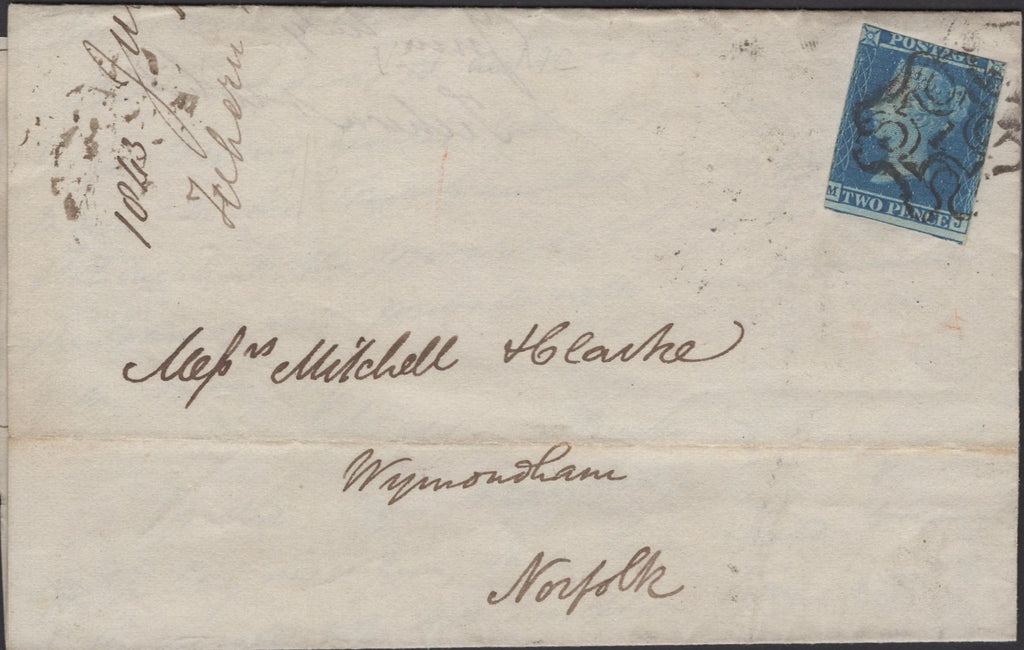 1843
POSTAGE
M TWO PENCE J
Messrs Mitchell & Clarke
Wymondham
Norfolk